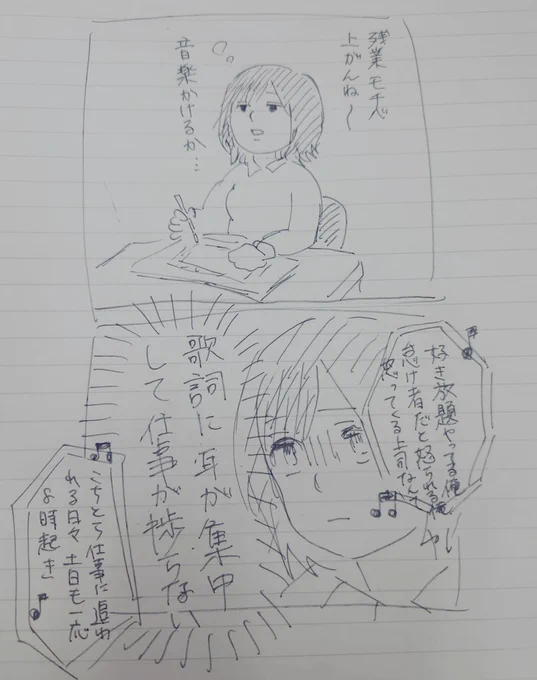 残業モチベ
上がんね～
音楽かけるか…
好き放題やってる俺
怠け者だと怒られる俺
怒ってくる上司なんす
歌詞に耳が集中
して仕事が捗らない
こちとら仕事に追わ
れる日々 土日も一応
8時起き